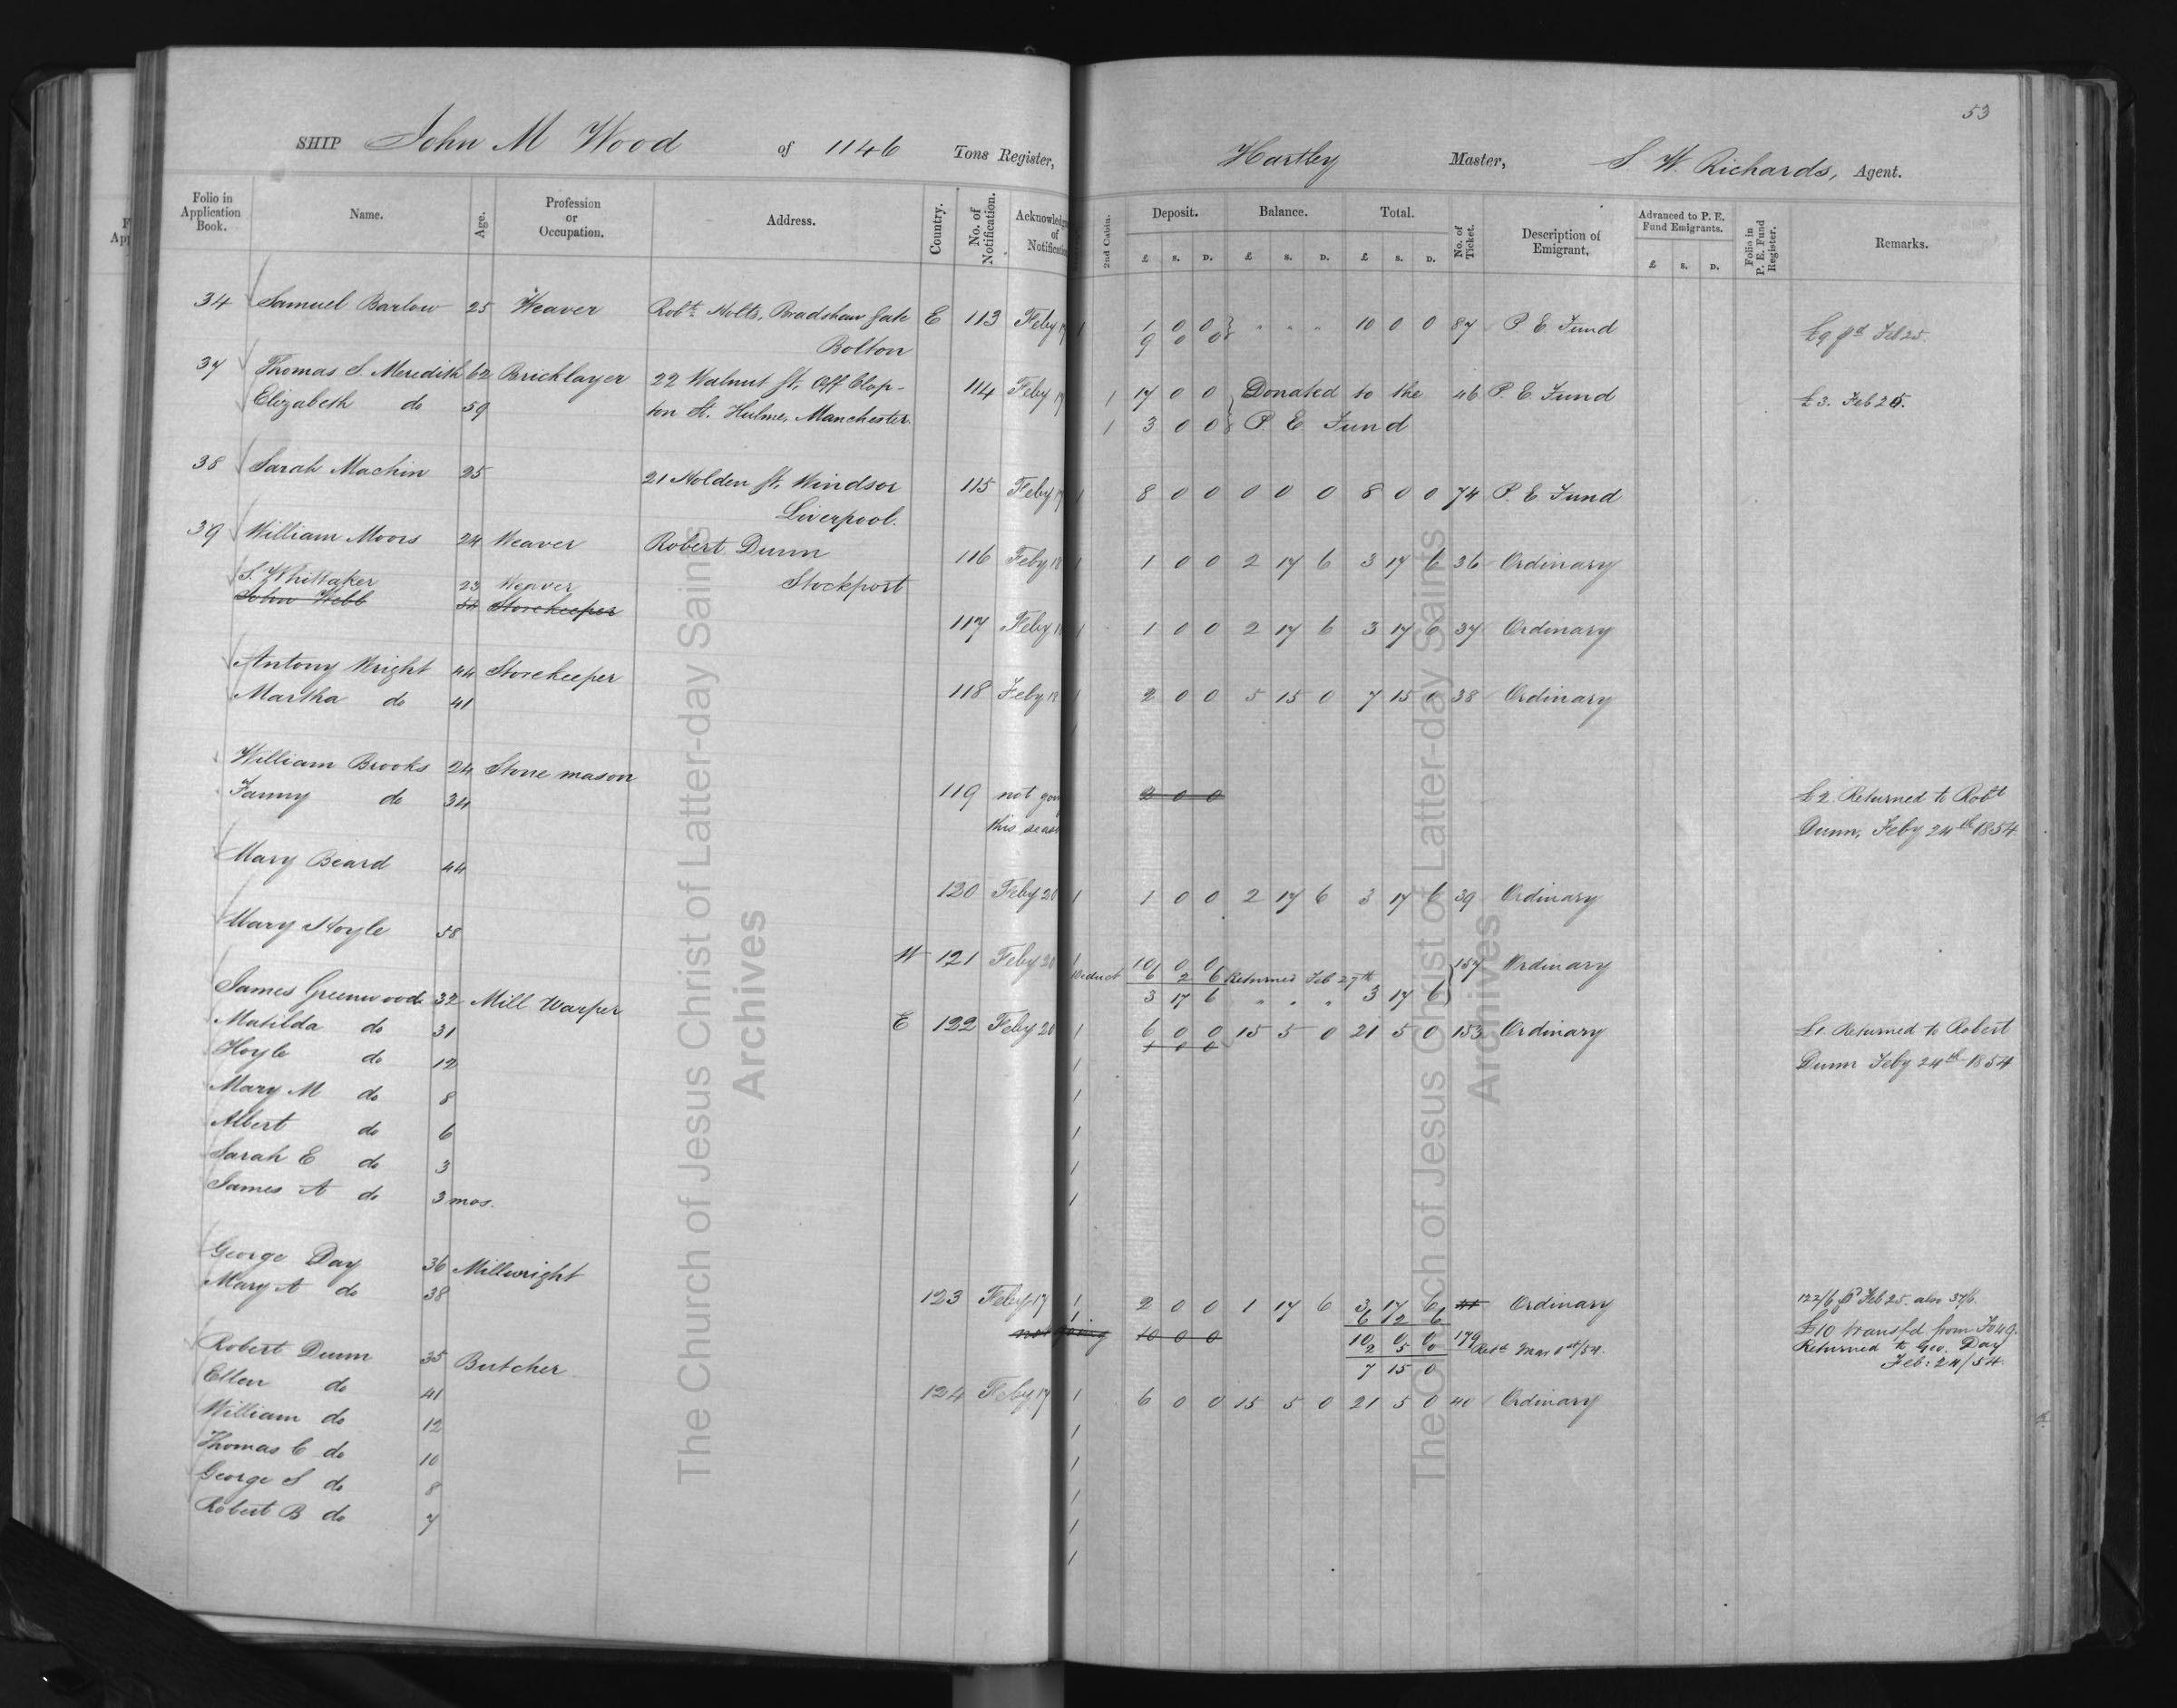 53
SHIP John M Wood of 1146 Tons Register, Hartley Master, S. W. Richards, Agent.
Folio in Application Book. Name. Age. Profession or Occupation. Address. Country. No. of Notification. of 2nd Cabin. Deposit. Balance. Total. No. of Ticket. Description of Emigrant. Advanced to P. E. Fund Emigrants. Folio in P. E. Fund Register. Remarks.
£ S. D. £ S. D. £ S. D. £ S. D.
34 Samuel Barlow 25 Weaver Robt Holts, Bradshaw gate E 113 Feby 17 1 1 0 0 " " " 10 0 0 87 P E Fund £9 pd Feb 25.
Bolton 9 0 0
37 Thomas S. Meredith 62 Bricklayer 22 Walnut St. Off Clop- 114 Feby 17 1 17 0 0 Donated to the 46 P. E. Fund £3. Feb 25.
Elizabeth do 59 ton St. Hulme, Manchester. 1 3 0 0 P. E Fund
38 Sarah Machin 25 21 Holden St. Windsor 115 Feby 17 1 8 0 0 0 0 0 8 0 0 74 P. E Fund
Liverpool.
39 William Moors 24 Weaver Robert Dunn 116 Feby 18 1 1 0 0 2 17 6 3 17 6 36 Ordinary
S. Whittaker 23 Weaver Stockport
John Webb Storekeeper 117 Feby 18 1 1 0 0 2 17 6 3 17 6 37 Ordinary
Antony Wright 44 Storekeeper
Martha do 41 118 Feby 18 1 2 0 0 5 15 0 7 15 0 38 Ordinary
1
William Brooks 24 Stone mason
Fanny do 34 119 not 2 0 0 £2. Returned to Robt
this Dunn, Feby 24th 1854
Mary Beard 44 120 Feby 20 1 1 0 0 2 17 6 3 17 6 39 Ordinary
Mary Hoyle 58 121 Feby 20 1 10 0 0 157 Ordinary
Deduct 6 2 6 Returned Feb 27th
3 17 6 " " " 3 17 6
James Greenwood 32 Mill Warper E 122 Feby 20 1 6 0 0 15 5 0 21 5 0 153 Ordinary £1. Returned to Robert
Matilda do 31 1 1 0 0 Dunn Feby 24th 1854
Hoyle do 12 1
Mary M do 8 1
Albert do 6 1
Sarah E do 3 1
James A do 3 mos.
George Day 36 Millwright 123 Feby 17 1 2 0 0 1 17 6 3 17 6 Ordinary 122/6 pd Feb 25. also 37/6.
Mary A do 38 1 6 12 6
not going 10 0 0 10 0 0 179 £10 transfd from Fo 49.
2 5 0 Retd Mar 1st/54. Returned to Geo. Day
7 15 0 Feb: 24/54.
Robert Dunn 35 Butcher 124 Feby 17 1 6 0 0 15 5 0 21 5 0 40 Ordinary
Ellen do 41 1
William do 12 1
Thomas C do 10 1
George S do 8 1
Robert B do 7 1
The Church of Jesus Christ of Latter-day Saints
Archives
The Church of Jesus Christ of Latter-day Saints
Archives